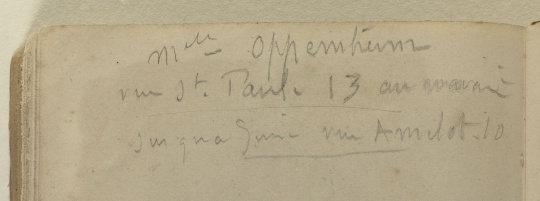 Mlle Oppenheim
rue St. Paul. 13 au marais
jusqua rue Amelot. 10